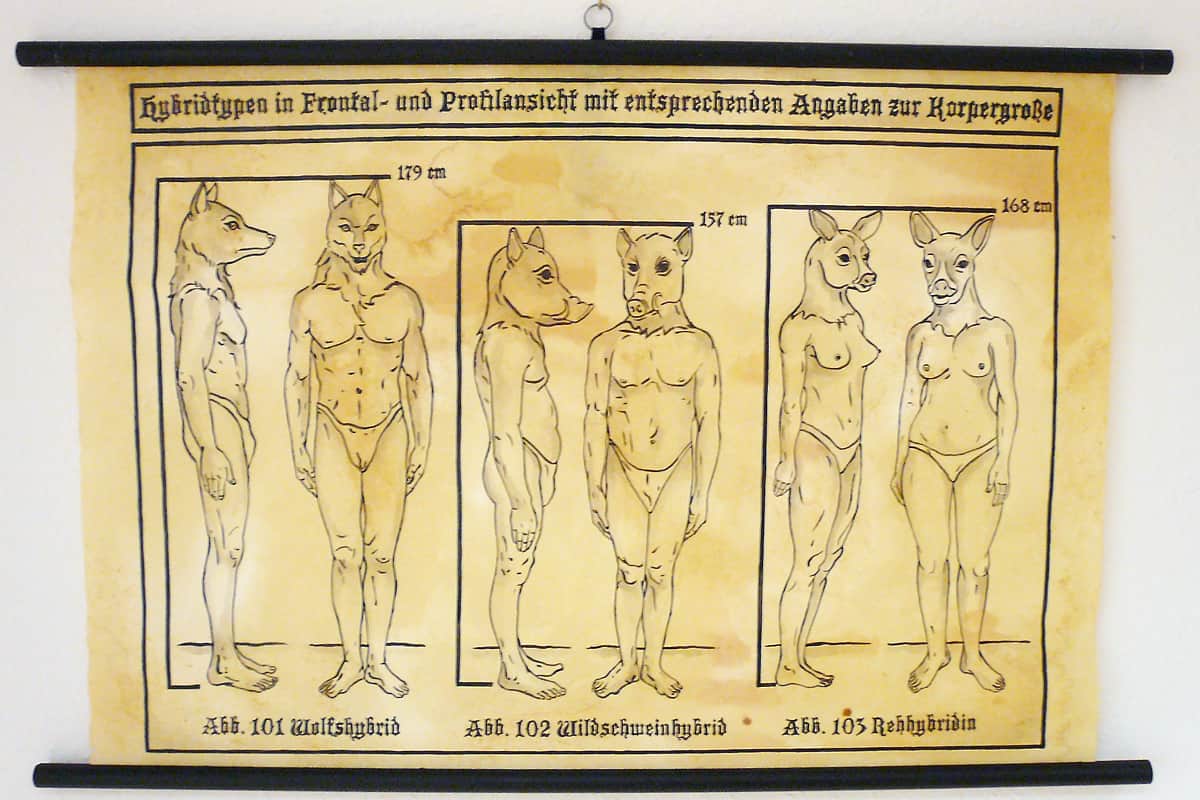 Hybridtypen in Frontal- und Profilansicht mit entsprechenden Angaben zur Korpergroße
179 cm
157 cm
168 cm
Abb. 101 Wolfshybrid
Abb. 102 Wildschweinhybrid
Abb. 103 Rehhybridin